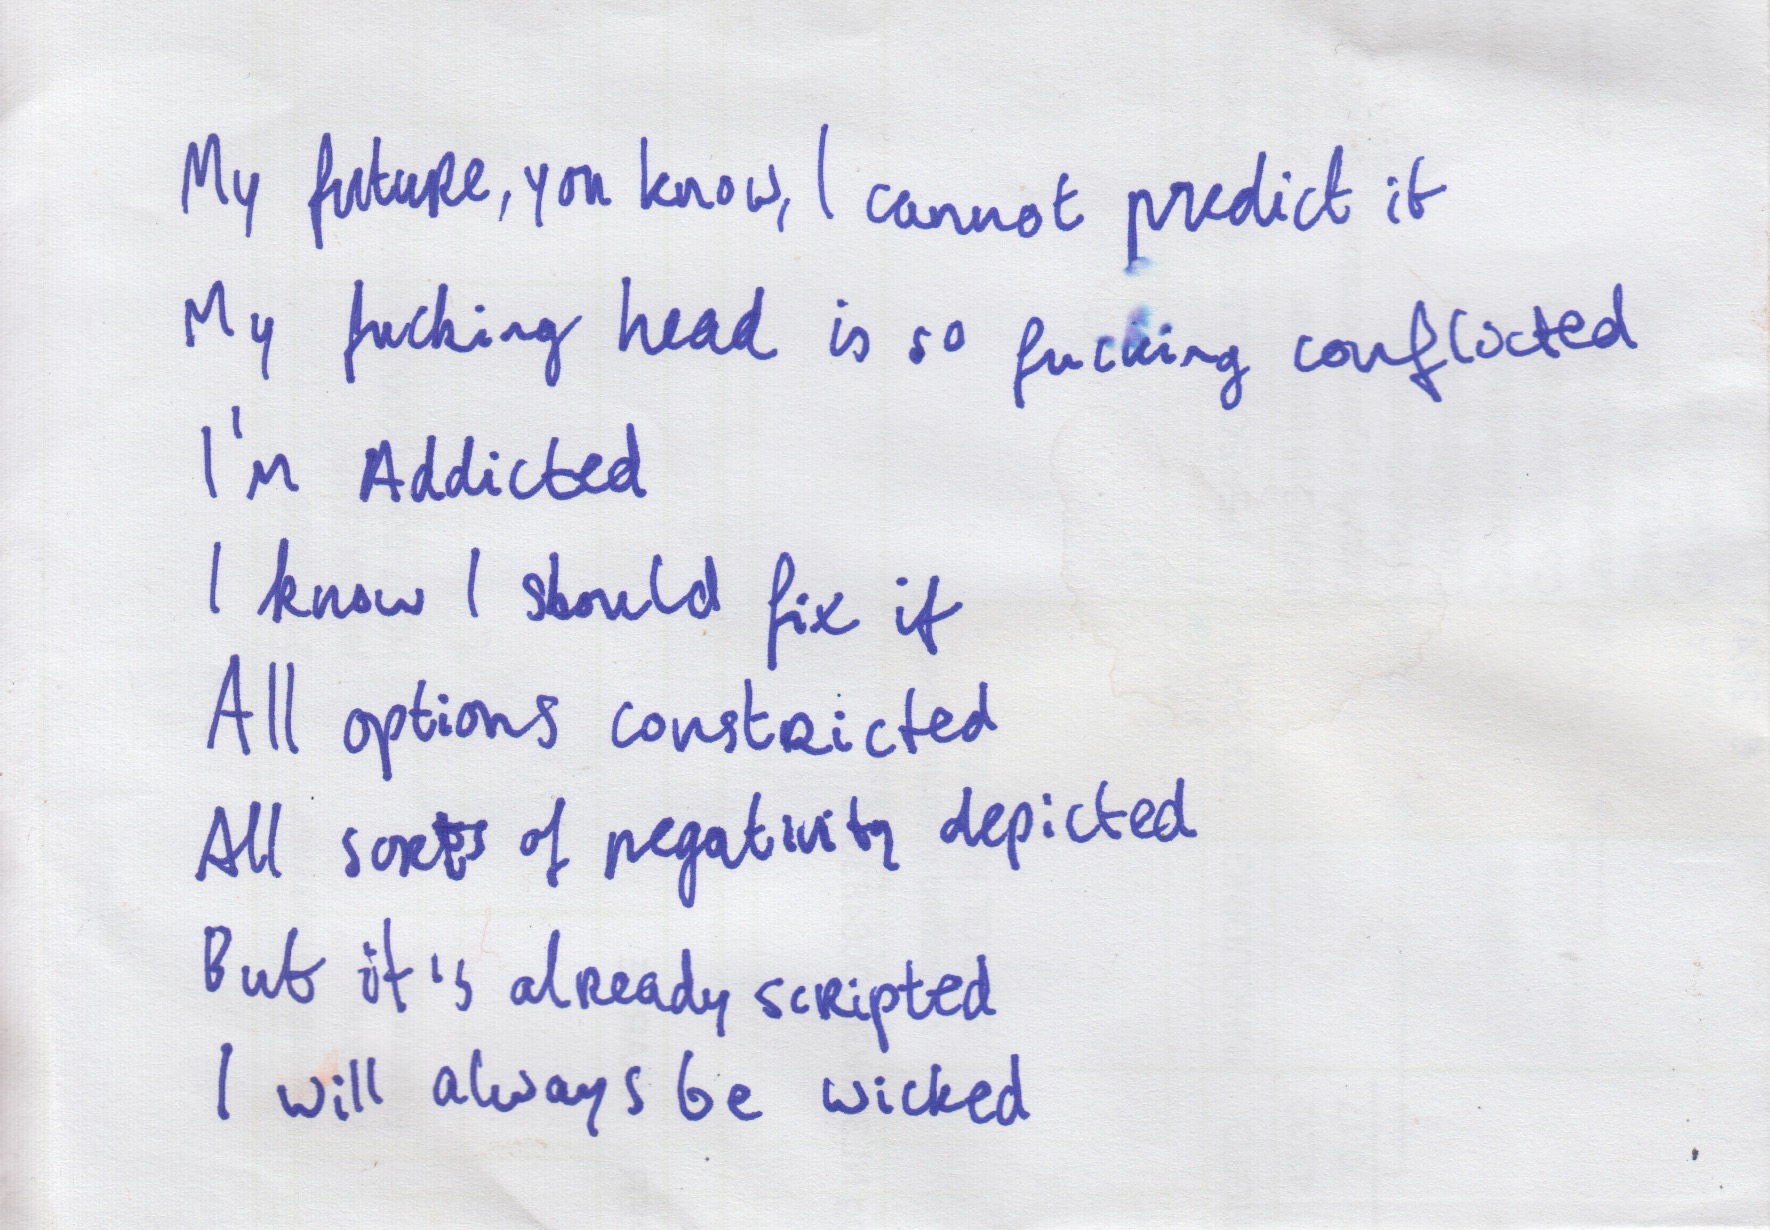 My future, you know, I cannot predict it
My fucking head is so fucking conflicted
I'm Addicted
I know I should fix it
All options constricted
All sorts of negativity depicted
But it's already scripted
I will always be wicked